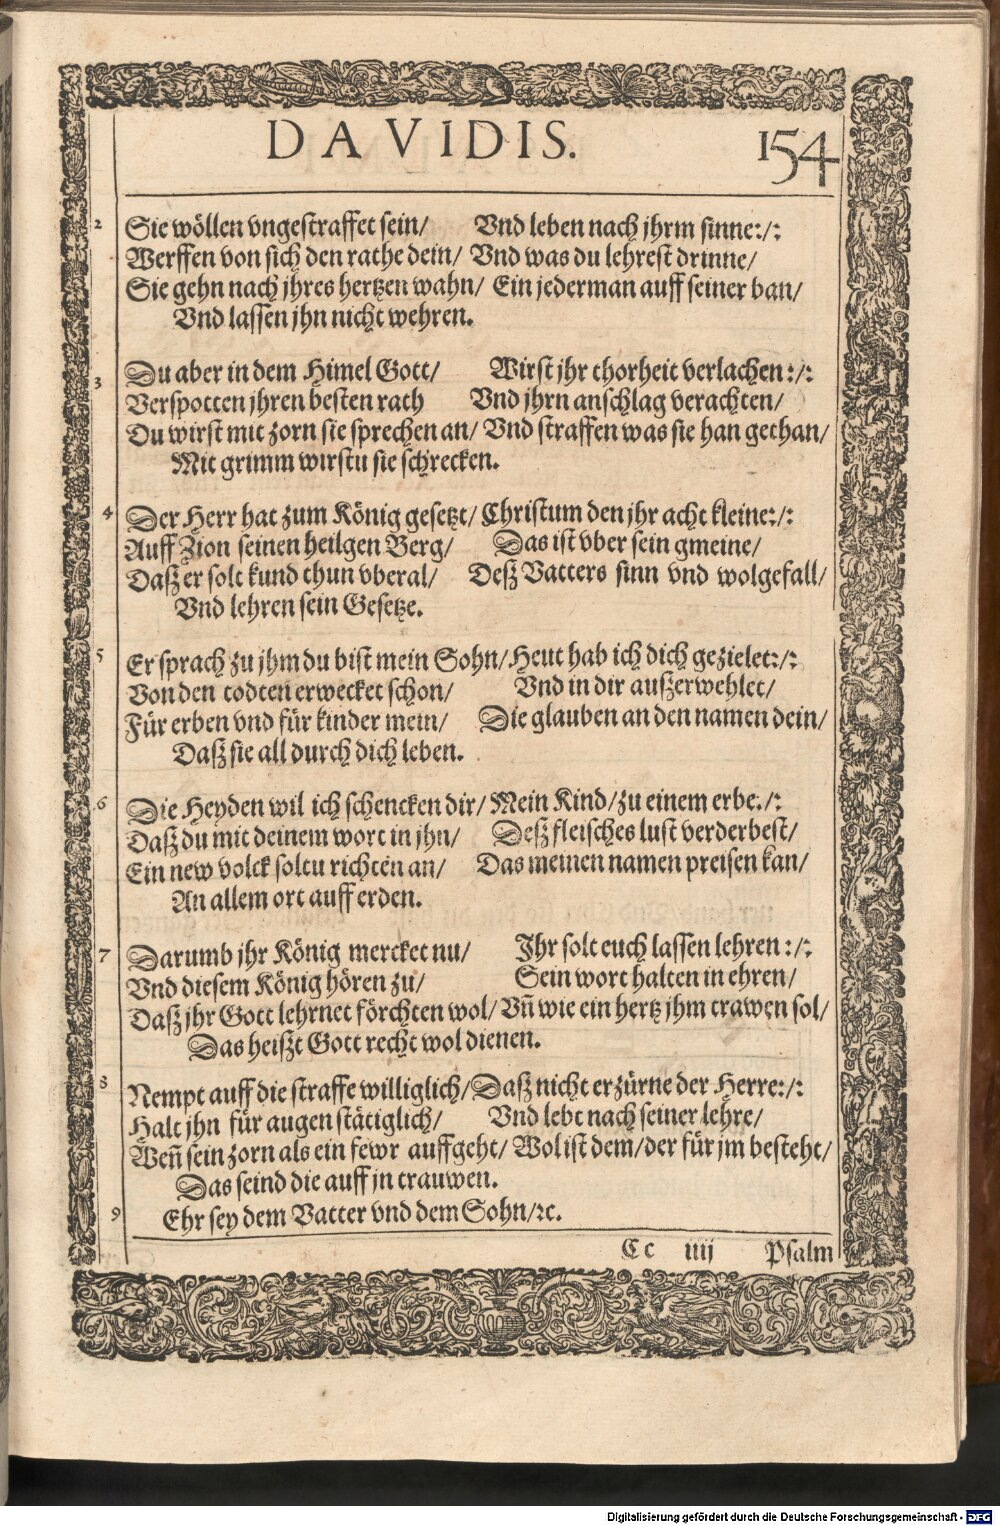 DAVIDIS. 154
2 Sie wöllen vngestraffet sein/ Vnd leben nach jhrm sinne:/:
Werffen von sich den rathe dein/ Vnd was du lehrest drinne/
Sie gehn nach jhres hertzen wahn/ Ein jederman auff seiner ban/
Vnd lassen jhn nicht wehren.
3 Du aber in dem Himel Gott/ Wirst jhr thorheit verlachen:/:
Verspotten jhren besten rath Vnd jhrn anschlag verachten/
Du wirst mit zorn sie sprechen an/ Vnd straffen was sie han gethan/
Mit grimm wirstu sie schrecken.
4 Der Herr hat zum König gesetzt/ Christum den jhr acht kleine:/:
Auff Zion seinen heilgen Berg/ Das ist vber sein gmeine/
Daß er solt kund thun vberal/ Deß Vatters sinn vnd wolgefall/
Vnd lehren sein Gesetze.
5 Er sprach zu jhm du bist mein Sohn/ Heut hab ich dich gezielet:/:
Von den todten erwecket schon/ Vnd in dir außerwehlet/
Für erben vnd für kinder mein/ Die glauben an den namen dein/
Daß sie all durch dich leben.
6 Die Heyden wil ich schencken dir/ Mein Kind/ zu einem erbe./:
Daß du mit deinem wort in jhn/ Deß fleisches lust verderbest/
Ein new volck soltu richten an/ Das meinen namen preisen kan/
An allem ort auff erden.
7 Darumb jhr König mercket nu/ Ihr solt euch lassen lehren:/:
Vnd diesem König hören zu/ Sein wort halten in ehren/
Daß jhr Gott lehrnet förchten wol/ Vn̄ wie ein hertz jhm trawen sol/
Das heißt Gott recht wol dienen.
8 Nempt auff die straffe williglich/ Daß nicht erzürne der Herre:/:
Halt jhn für augen stätiglich/ Vnd lebt nach seiner lehre/
Wen̄ sein zorn als ein fewr auffgeht/ Wol ist dem/ der für jm besteht/
Das seind die auff jn trauwen.
9 Ehr sey dem Vatter vnd dem Sohn/ꝛc.
Cc iiij Psalm
Digitalisierung gefördert durch die Deutsche Forschungsgemeinschaft - DFG